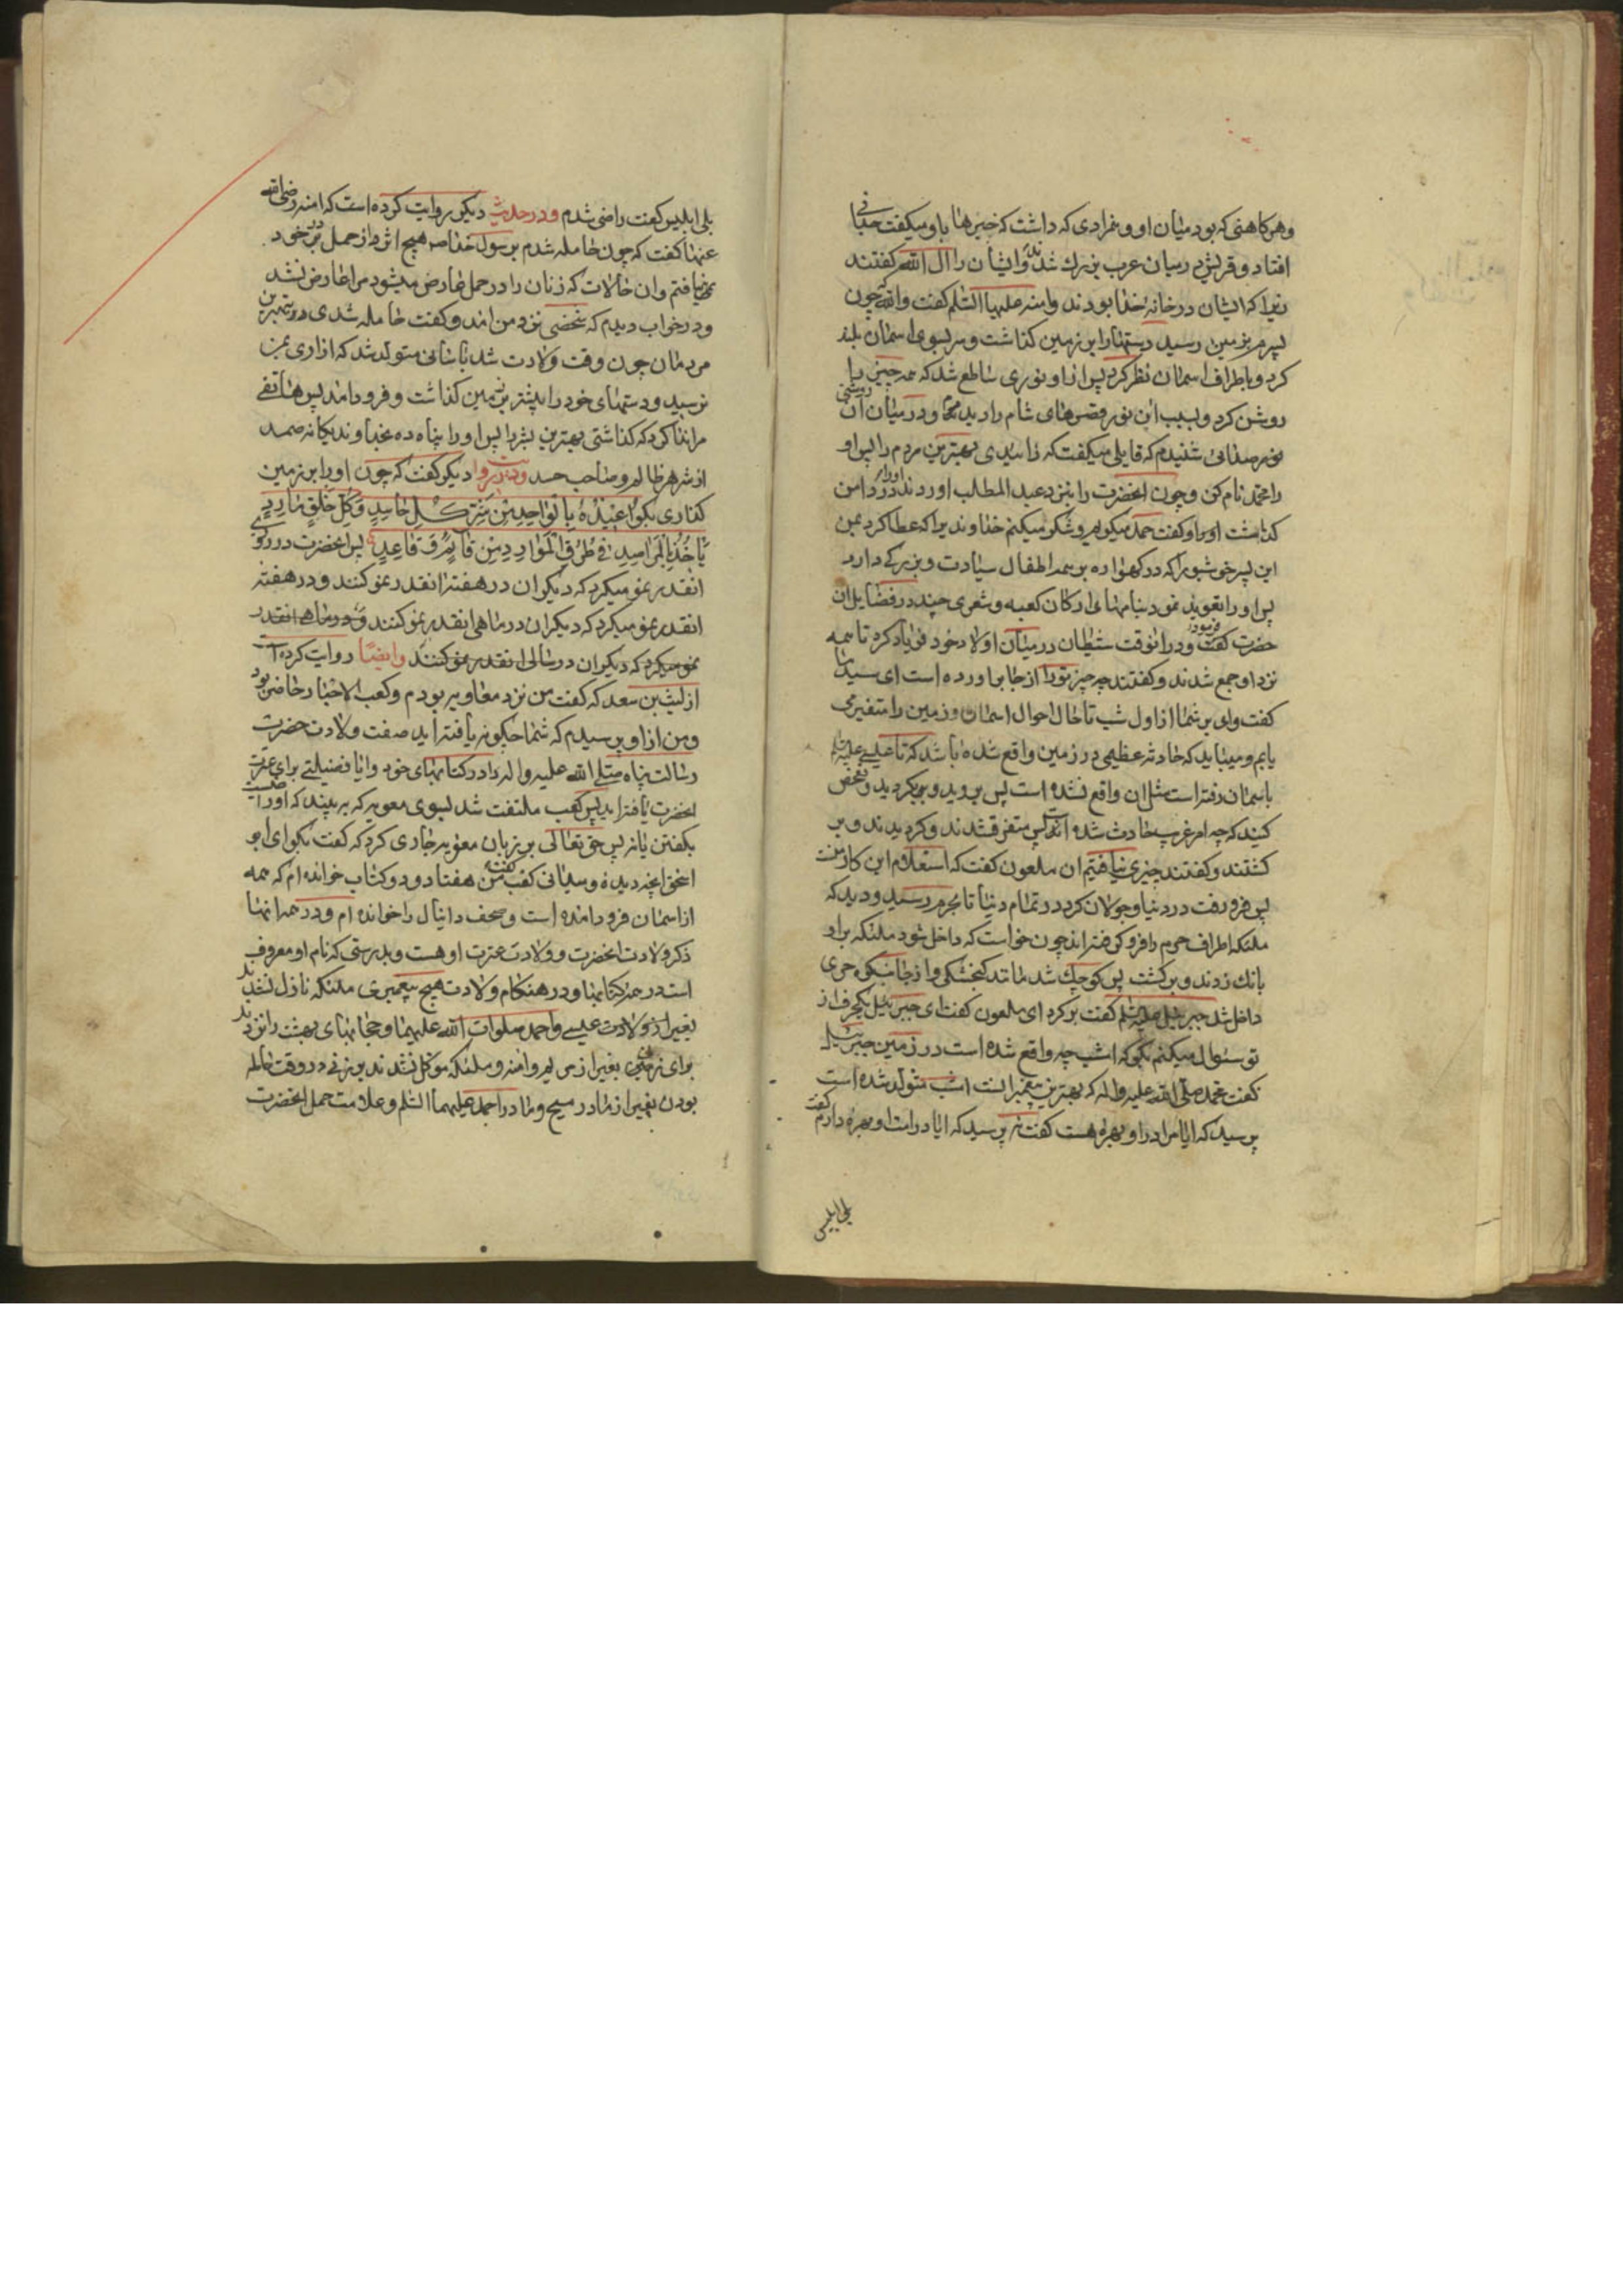 وهر کاهنی که بود میان او و همزادی که داشت که خبرها باو میگفت جدائی
افتاد و قریش در میان عرب بزرك شدند و ایشان را ال الله گفتند
زیرا که ایشان در خانه خدا بودند و امنه علیها السلام گفت والله چون
پسرم بزمین رسید دستها را بر زمین گذاشت و سر بسوی اسمان بلند
کرد و باطراف اسمان نظر کرد پس از او نوری ساطع شد که همه چیز را
روشن کرد و بسبب ان نور قصرهای شام را دیدم و در میان آن روشنی
صدائی شنیدم که قایلی میگفت که زائیدی بهترین مردم را پس او
را محمد نام کن و چون انحضرت را بنزد عبد المطلب اوردند او را در دامن
گذاشت و گفت حمد میگویم و شکر میکنم خداوندیرا که عطا کرد بمن
این پسر خوشبو را که در گهواره بر همه اطفال سیادت و بزرگی دارد
پس او را تعویذ نمود بنامهای ارکان کعبه و شعری چند در فضایل ان
حضرت فرمود و در انوقت شیطان در میان اولاد خود فریاد کرد تا همه
نزد او جمع شدند و گفتند چه چیز تو را از جا براورده است ای سید ما
گفت وای بر شما از اول شب تا حال احوال اسمان و زمین را متغیر می
یابم و میباید که حادثه عظیمی در زمین واقع شده باشد که تا عیسی علیه السلم
باسمان رفته است مثل ان واقع نشده است پس بروید و بگردید و تفحص
کنید که چه امر غریب حادث شده است پس متفرق شدند و گردیدند و بر
گشتند و گفتند چیزی نیافتیم ان ملعون گفت که استعلام این کار منست
پس فرو رفت در دنیا و جولان کرد در تمام دنیا تا بحرم رسید و دید که
ملئکه اطراف حرم را فرو گرفته اند چون خواست که داخل شود ملئکه بر او
بانك زدند و برگشت پس کوچك شد مانند گنجشکی و از جانب کوه حری
داخل شد جبرئیل علیه السلم گفت برگرد ای ملعون گفت ای جبرئیل یکحرف از
تو سئوال میکنم بگو که امشب چه واقع شده است در زمین جبرئیل
گفت محمد صلی الله علیه واله که بهترین پیغمبرانست امشب متولد شده است
پرسید که ایا مرا در او بهره هست گفت نه پرسید که ایا در امت او بهره دارم گفت
بلی ابلیس
بلی ابلیس گفت راضی شدم و در حدیث دیگر روایت کرده است که امنه رضی الله
عنها گفت که چون حامله شدم برسول خدا صم هیچ اثر از حمل در خود
نیافتم و ان حالات که زنان را در حمل عارض میشود مرا عارض نشد
و در خواب دیدم که شخصی نزد من امد و گفت حامله شدی به بهترین
مردمان چون وقت ولادت شد باسانی متولد شد که ازاری بمن
نرسید و دستهای خود را پیشتر بزمین گذاشت و فرود امد پس هاتفی
مرا ندا کرد که گذاشتی بهترین بشر را پس او را پناه ده بخداوند یگانه صمد
از شر هر ظالم و صاحب حسد و بروایت دیگر گفت که چون او را بر زمین
گذاری بگو اعیذه بالواحد من شر کل حاسد وکل خلق مارد
یأخذ بالمراصد فی طرق الموارد من قائم وقاعد پس انحضرت در روزی
انقدر نمو میکرد که دیگران در هفته انقدر نمو کنند و در هفته
انقدر نمو میکرد که دیگران در ماهی انقدر نمو کنند و در ماهی انقدر
نمو میکرد که دیگران در سالی انقدر نمو کنند وایضا روایت کرده است
از لیث بن سعد که گفت من نزد معاویه بودم و کعب الاحبار حاضر بود
و من از او پرسیدم که شما چگونه یافته اید صفت ولادت حضرت
رسالت پناه صلی الله علیه واله را در کتابهای خود و ایا فضیلتی برای عترت
انحضرت یافته اید پس کعب ملتفت شد بسوی معویه که به بیند که او راضیست
بگفتن یا نه پس حق تعالی بر زبان معویه جاری کرد که گفت بگو ای ابو
اسحق انچه دیده و میدانی کعب گفت من هفتاد و دو کتاب خوانده ام که همه
از اسمان فرود امده است و صحف دانیال را خوانده ام و در همه انها
ذکر ولادت انحضرت و ولادت عترت او هست و بدرستی که نام او معروف
است در همه کتابها و در هنگام ولادت هیچ پیغمبری ملئکه نازل نشدند
بغیر از ولادت عیسی و احمد صلوات الله علیهما و حجابهای بهشت را نزدند
برای زنی بغیر از مریم و امنه و ملئکه موکل نشدند بر زنی در وقت حامله
بودن بغیر از مادر مسیح و مادر احمد علیهما السلم و علامت حمل انحضرت